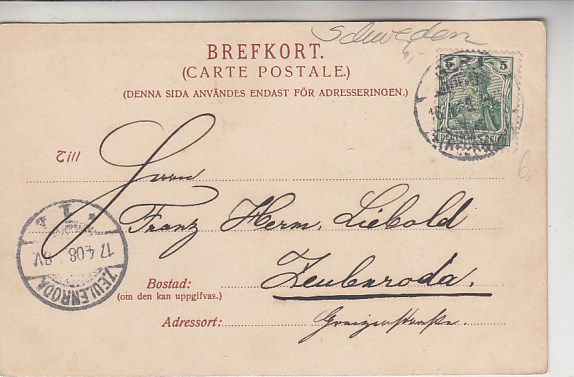 Schweden
BREFKORT.
(CARTE POSTALE.)
(DENNA SIDA ANVÄNDES ENDAST FÖR ADRESSERINGEN.)
5
Till
Herrn
Franz Herm. Liebold
Bostad: Zeulenroda.
(om den kan uppgifvas.)
Adressort: Greizerstraße.
17.4.08
ZEULENRODA